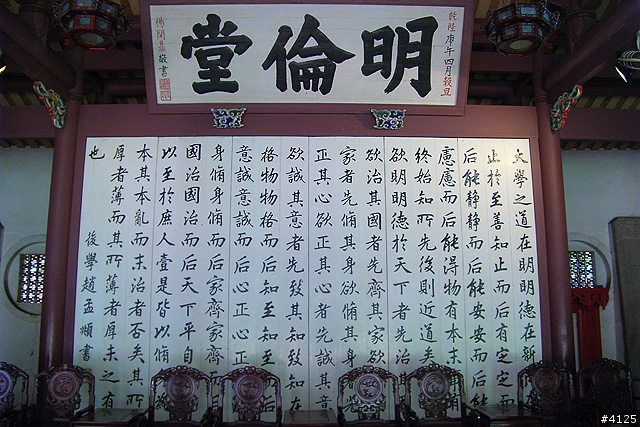 乾隆庚午四月穀旦
明倫堂
楊開鼎敬書
大學之道在明明德在新
止於至善知止而后有定定而
后能靜靜而后能安安而后能
慮慮而后能得物有本末有
終始知所先後則近道矣
欲明明德於天下者先治
欲治其國者先齊其家欲
家者先脩其身欲脩其身
正其心欲正其心者先誠其意
欲誠其意者先致其知致知在
格物物格而后知至知至
意誠意誠而后心正心正
身脩身脩而后家齊家齊而
國治國治而后天下平自
以至於庶人壹是皆以脩為
本其本亂而末治者否矣其
厚者薄而其所薄者厚未之有
也
後學趙孟頫書
#4125